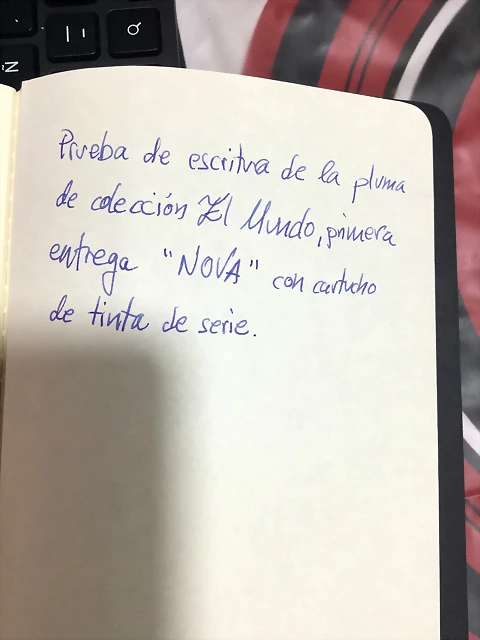 Prueba de escritura de la pluma
de colección El Mundo, primera
entrega "NOVA" con cartucho
de tinta de serie.